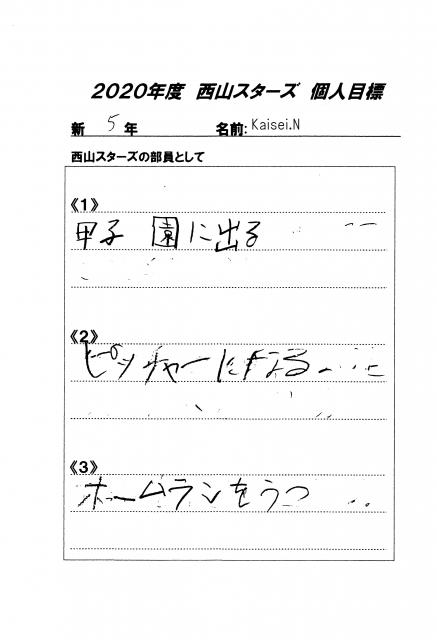 2020年度 西山スターズ 個人目標
新 5 年 名前: Kaisei.N
西山スターズの部員として
《1》
甲子園に出る
《2》
ピッチャーになる
《3》
ホームランをうつ